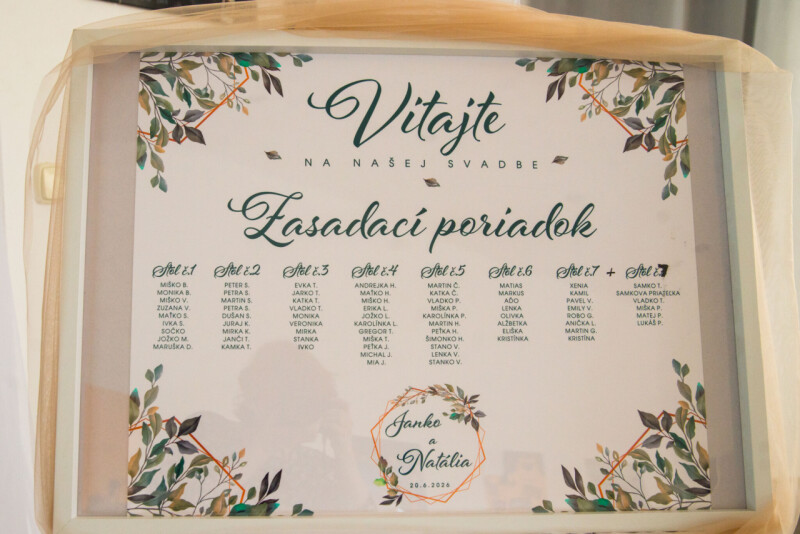 Vitajte
NA NAŠEJ SVADBE
Zasadací poriadok
Stôl č.1
MIŠKO B.
MONIKA B.
MIŠKO V.
ZUZANA V.
MAŤKO S.
IVKA S.
SOČKO
JOŽKO M.
MARUŠKA D.
Stôl č.2
PETER S.
PETRA S.
MARTIN S.
PETRA S.
DUŠAN S.
JURAJ K.
MIRKA K.
JANČI T.
KAMKA T.
Stôl č.3
EVKA T.
JARKO T.
KATKA T.
VLADKO T.
MONIKA
VERONIKA
MIRKA
STANKA
IVKO
Stôl č.4
ANDREJKA H.
MAŤKO H.
MIŠKO H.
ERIKA L.
JOŽKO L.
KAROLÍNKA L.
GREGOR T.
MIŠKA T.
PEŤKA J.
MICHAL J.
MIA J.
Stôl č.5
MARTIN Č.
KATKA Č.
VLADKO P.
MIŠKA P.
KAROLÍNKA P.
MARTIN H.
PEŤKA H.
ŠIMONKO H.
STANO V.
LENKA V.
STANKO V.
Stôl č.6
MATIAS
MARKUS
AĎO
LENKA
OLIVKA
ALŽBETKA
ELIŠKA
KRISTÍNKA
Stôl č.7 +
XENIA
KAMIL
PAVEL V.
EMILY V.
ROBO G.
ANIČKA L.
MARTIN G.
KRISTÍNA
Stôl č.7
SAMKO T.
SAMKOVA PRIAZELKA
VLADKO T.
MIŠKA P.
MATEJ P.
LUKÁŠ P.
Janko
a
Natália
20.6.2026